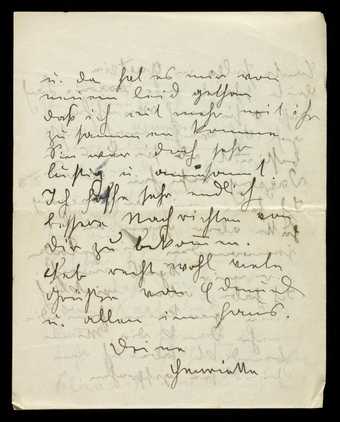 u. da hat es mir von
neuem leid gethan
daß ich nicht mehr mit ihr
zusammen komme
Sie war doch sehr
lustig u. amüsant.
Ich hoffe sehr endlich
bessere Nachrichten von
dir zu bekommen.
Leb recht wohl viele
Grüße von Edmund
u. allen im Haus.
Deine
Henriette